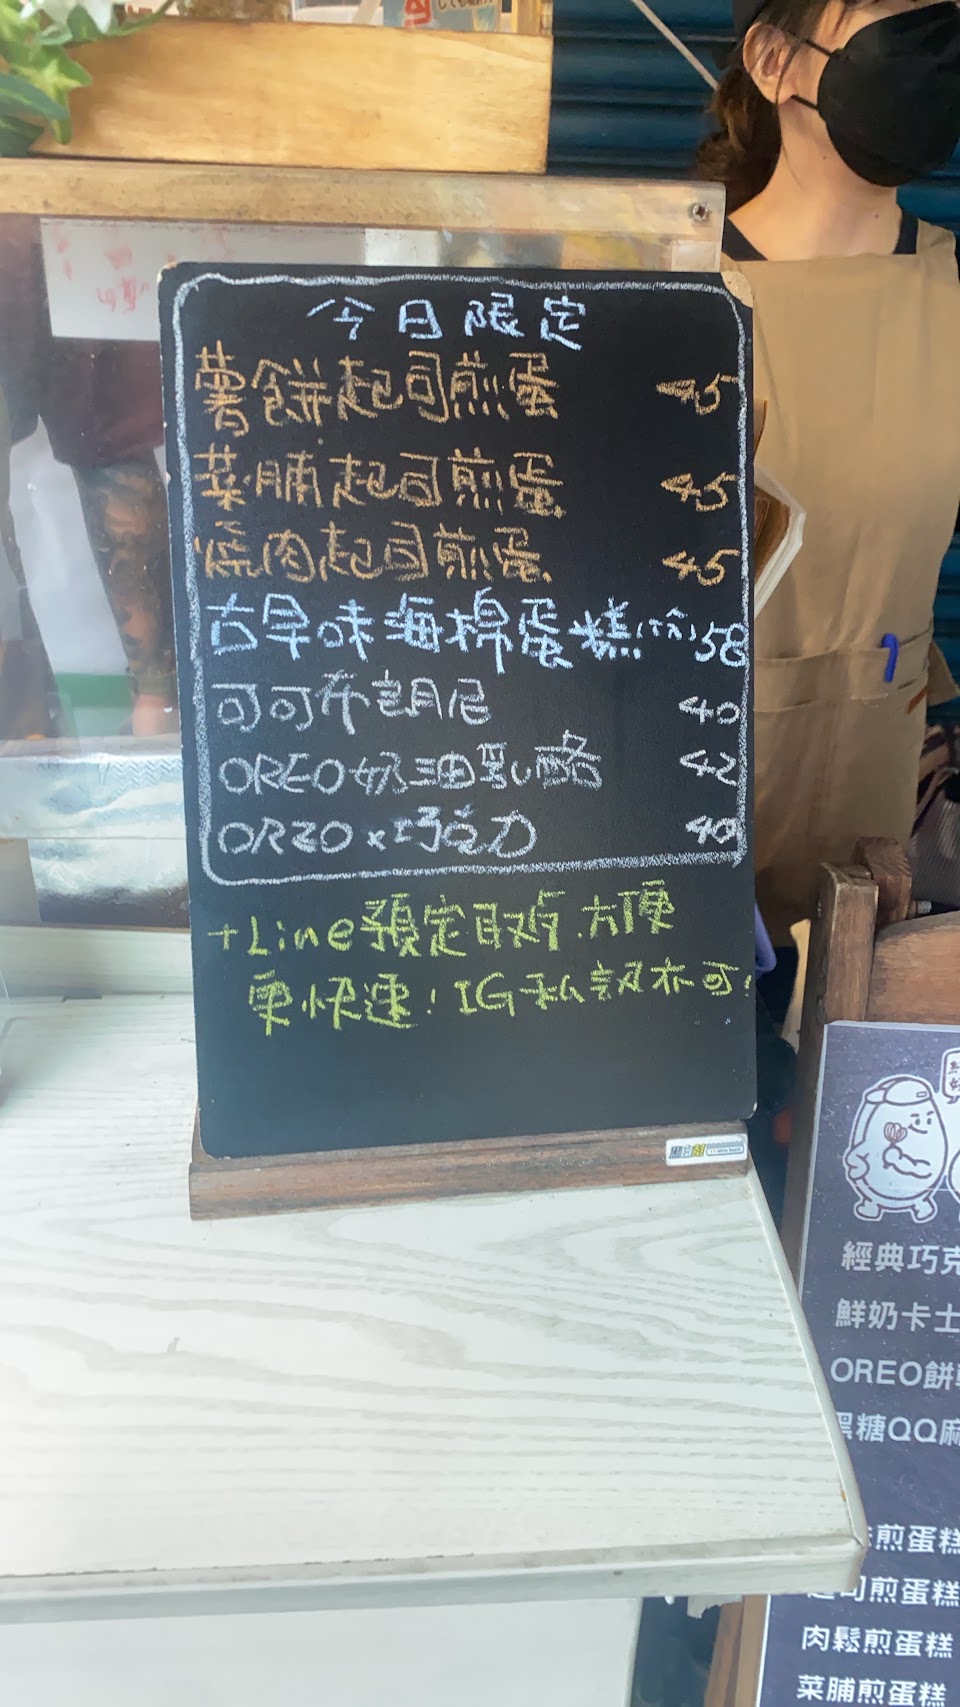 今日限定
薯餅起司煎蛋 45
菜脯起司煎蛋 45
燒肉起司煎蛋 45
古早味海棉蛋糕 58
可可布朗尼 40
OREO奶油乳酪 42
OREO×巧克力 40
+Line預定取餐.方便
更快速!IG私訊亦可!
經典巧克
鮮奶卡士
OREO餅乾
黑糖QQ麻
煎蛋糕
起司煎蛋糕
肉鬆煎蛋糕
菜脯煎蛋糕